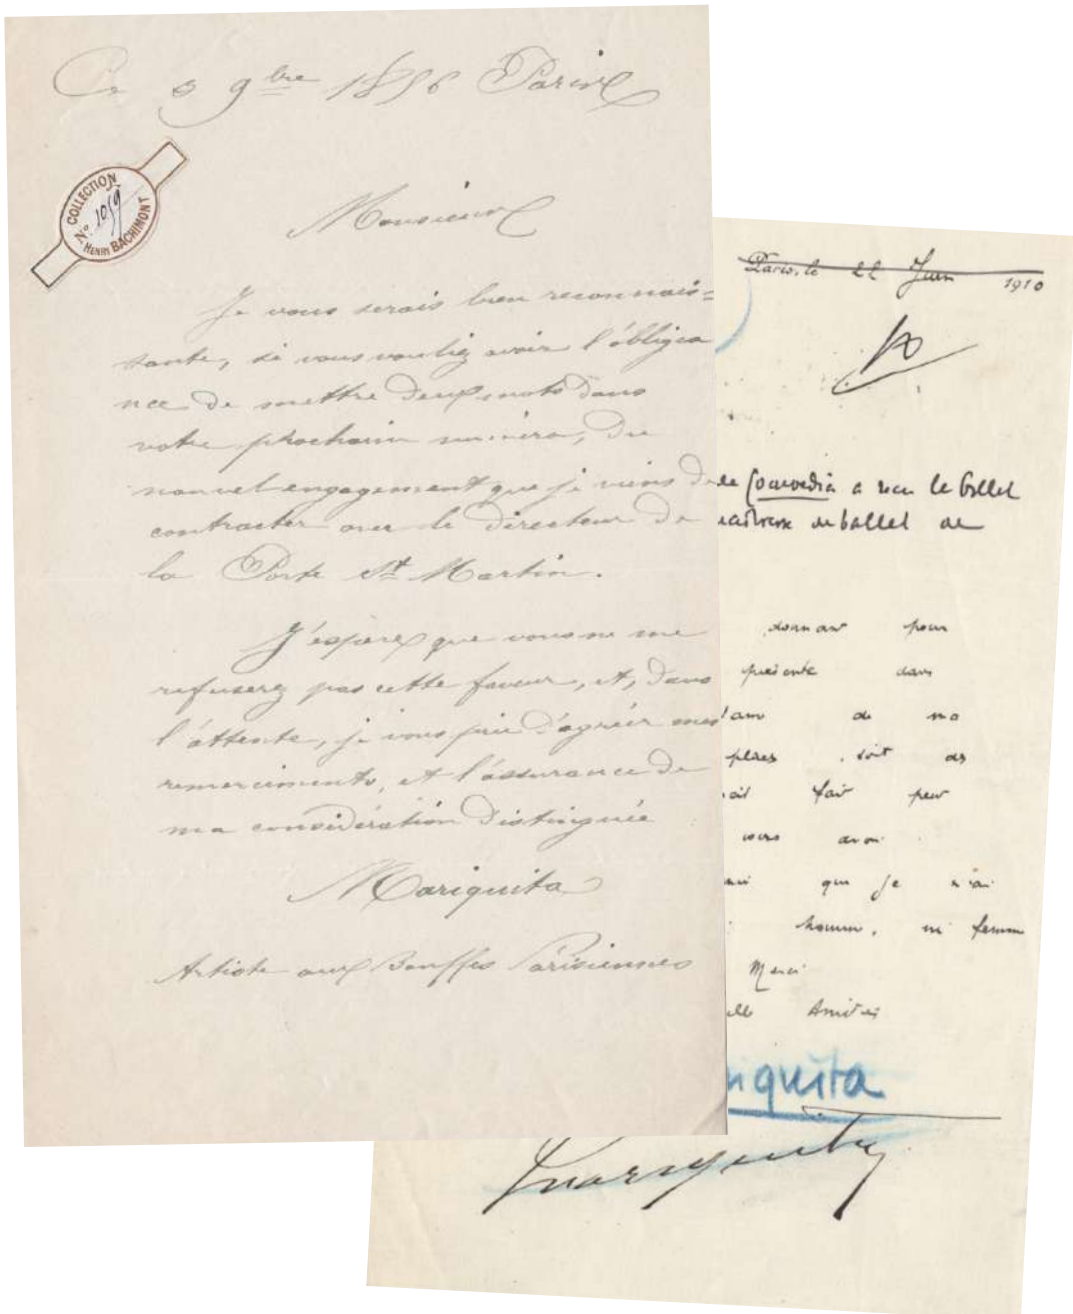 Ce 3 9bre 1856 Paris
COLLECTION
No. 1059
HENRI BACHIMONT
Monsieur
Je vous serais bien reconnais=
sante, si vous vouliez avoir l'obligea
nce de mettre deux mots dans
votre prochain numéro, du
nouvel engagement que je viens de
contracter avec le directeur de
la Porte St Martin.
J'espère que vous ne me
refuserez pas cette faveur, et, dans
l'attente, je vous prie d'agréer mes
remerciments, et l'assurance de
ma considération distinguée
Mariquita
Artiste aux Bouffes Parisiennes
Paris, le 22 Juin 1910
Comoedia a reçu le billet
de ballet de
donnant pour
présente dans
de ma
soit des
fait peur
vous avoir
que je n'ai
homme, ni femme
Merci
Amitiés
riquita
Mariquita